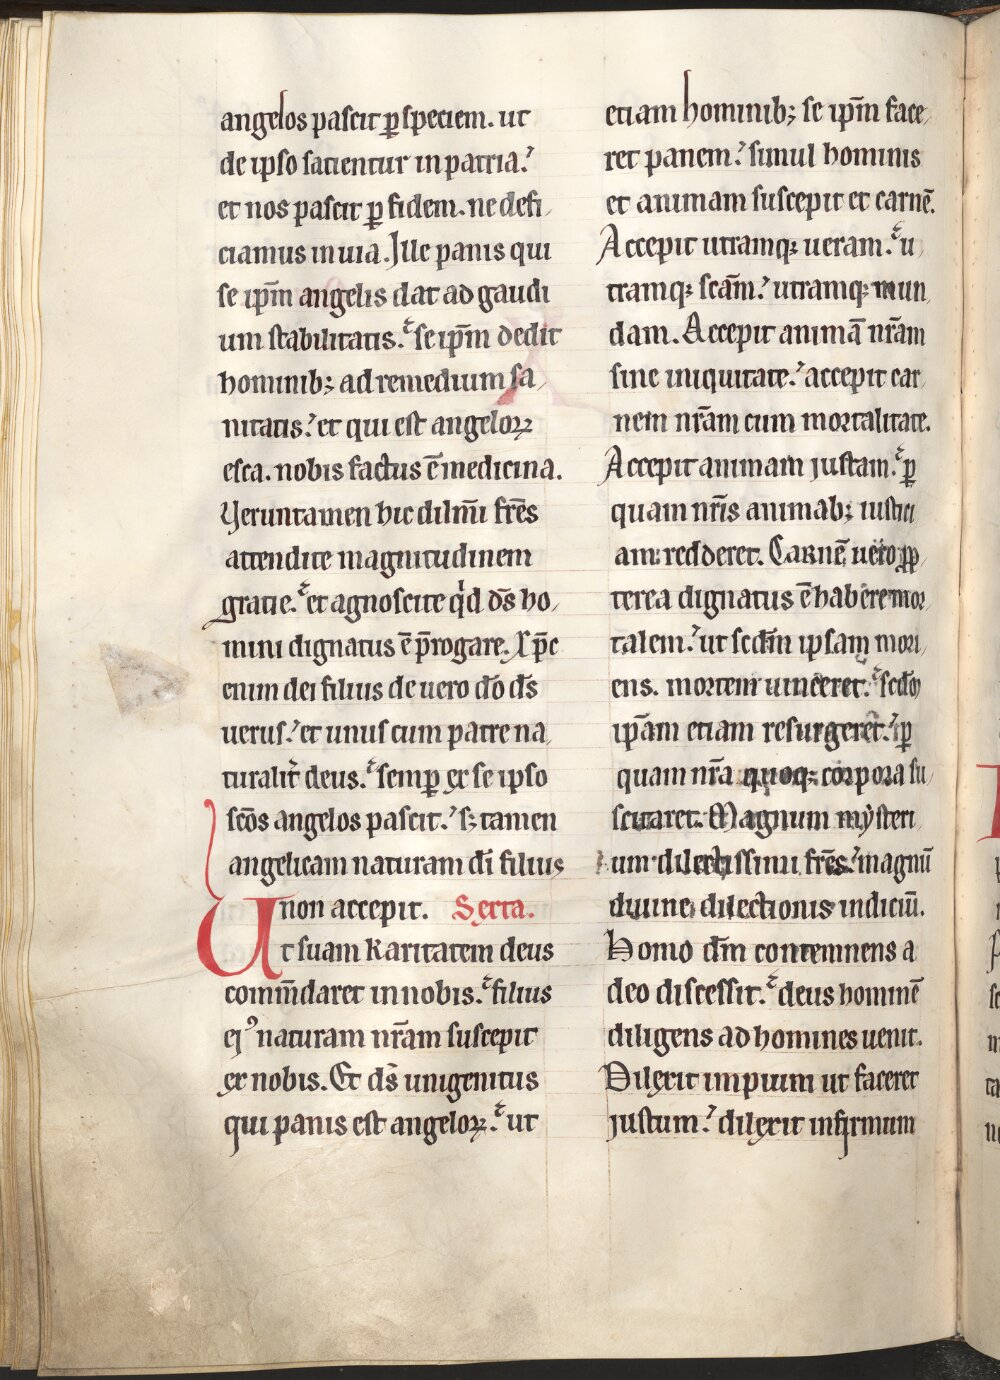 angelos pascit ꝑ speciem. ut
de ipso satientur in patria.
et nos pascit ꝑ fidem. ne defi
ciamus in uia. Ille panis qui
se ip̄m angelis dat ad gaudi
um stabilitatis. se ip̄m dedit
hominib; ad remedium sa
nitatis. et qui est angeloꝝ
esca. nobis factus ē medicina.
Veruntamen hic dilm̄i fr̄es
attendite magnitudinem
gratie. et agnoscite qd d̄s ho
mini dignatus ē p̄rogare. Xp̄c
enim dei filius de uero d̄o d̄s
uerus. et unus cum patre na
turalit̄ deus. semꝑ ex se ipso
sc̄os angelos pascit. s; tamen
angelicam naturam dī filius
non accepit. Sexta.
Ut suam karitatem deus
com̄mdaret in nobis. filius
ejꝰ naturam nr̄am suscepit
ex nobis. Et d̄s unigenitus
qui panis est angeloꝝ. ut
etiam hominib; se ip̄m face
ret panem. simul hominis
et animam suscepit et carnē.
Accepit utramqꝫ ueram. u
tramqꝫ sc̄am. utramqꝫ mun
dam. Accepit animā nr̄am
sine iniquitate. accepit car
nem nr̄am cum mortalitate.
Accepit animam justam. ꝑ
quam nr̄is animab; iustici
am redderet. Carnē uero ꝓp
terea dignatus ē habere mor
talem. ut scd̄m ipsam mori
ens. mortem uinceret. scd̄o
ip̄am etiam resurgeret. ꝑ
quam nr̄a quoqꝫ corpora su
scitaret. Magnum mysteri
um dilectissimi fr̄es. magnū
diuine dilectionis indiciū.
Homo d̄m contemnens a
deo discessit. deus hominē
diligens ad homines uenit.
Dilexit impium ut faceret
justum. dilexit infirmum